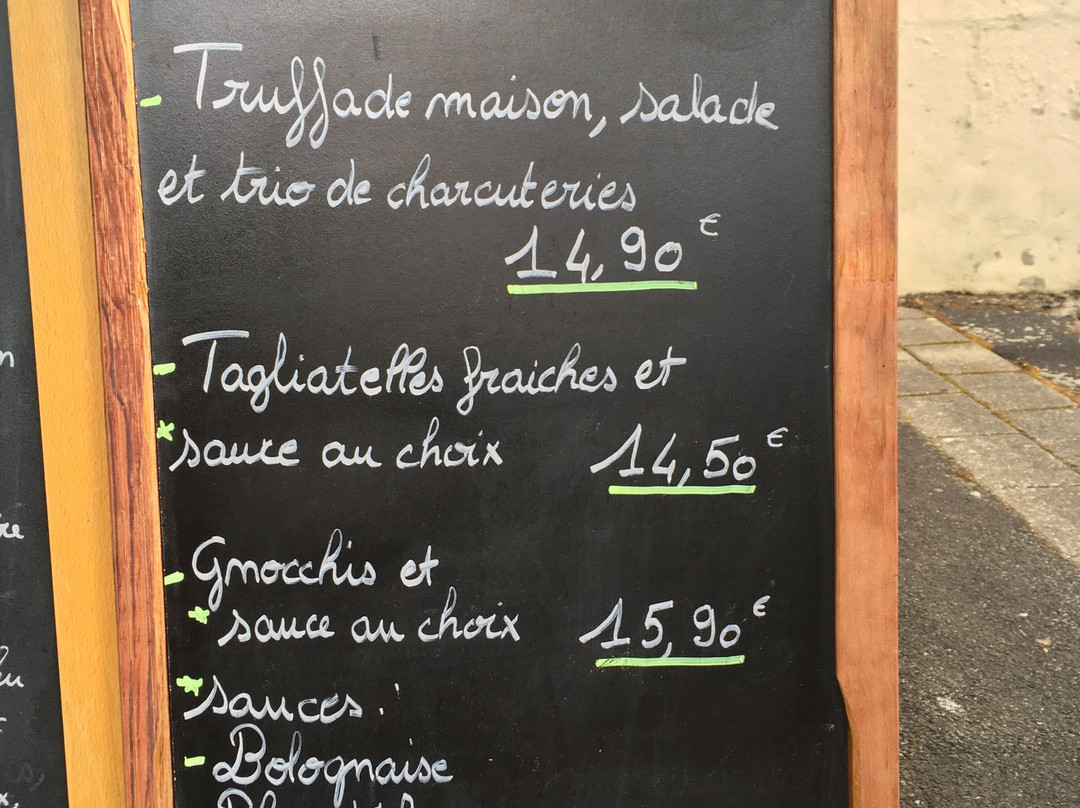 - Truffade maison, salade
et trio de charcuteries
14,90 €
- Tagliatelles fraiches et
* sauce au choix 14,50 €
- Gnocchis et
* sauce au choix 15,90 €
* sauces :
- Bolognaise